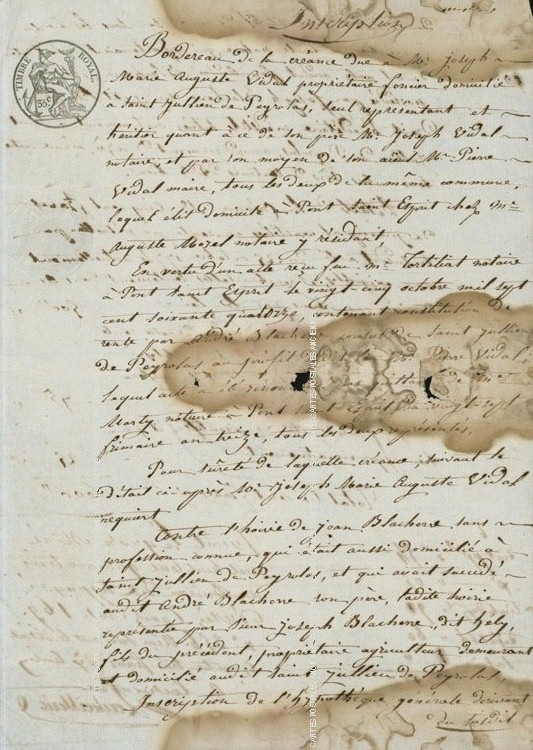 Inscription
TIMBRE ROYAL
35 c
Bordereau de la créance due à Mr. Joseph
Marie Auguste Vidal propriétaire foncier domicilié
à Saint Jullien de Peyrolas, seul représentant et
héritier quant à ce de son père Mr. Joseph Vidal
notaire, et par son moyen de son aïeul Mr. Pierre
Vidal maire, tous les deux de la même commune,
lequel élit domicile à Pont Saint Esprit chez Me
Auguste Mozel notaire y résidant,
En vertu d'un acte reçu feu Me notaire
à Pont Saint Esprit le vingt cinq octobre mil sept
cent soixante quatorze, contenant constitution de
rente par André Blachere de Saint Jullien
de Peyrolas, au profit dudit Pierre Vidal
lequel acte a été
Marty notaire à Pont Saint Esprit du vingt sept
frimaire an treize, tous les deux représentés.
Pour sûreté de laquelle créance, suivant le
détail ci-après Mr Joseph Marie Auguste Vidal
requiert
Contre l'hoirie de Jean Blachere sans
profession connue, qui était aussi domicilié à
Saint Jullien de Peyrolas, et qui avait succédé
audit André Blachere son père, ladite hoirie
représentée par Sieur Joseph Blachere, dit Gely,
fils du précédent, propriétaire agriculteur demeurant
et domicilié audit Saint Jullien de Peyrolas,
Inscription de l'hypothèque générale dérivant
du susdit
CARTES POSTALES ANCIEN
CARTES POSTALES